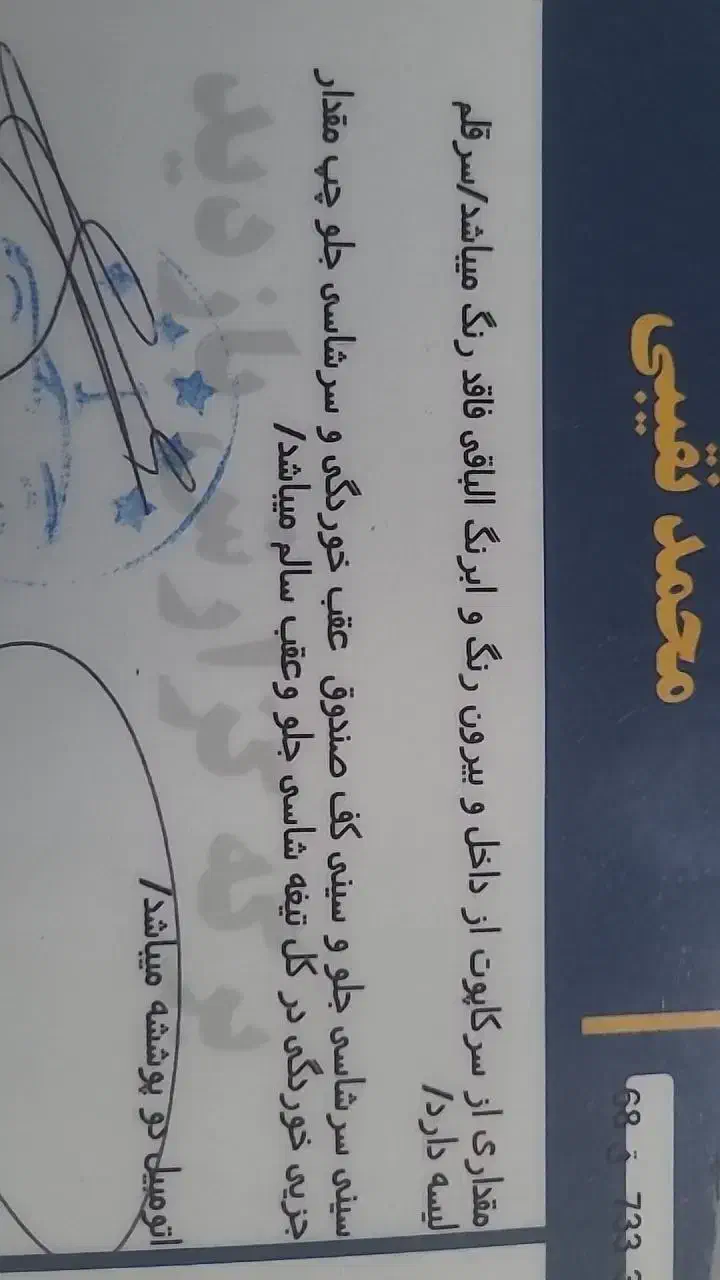 محمد نقیبی
733 ق 68
مقداری از سرکاپوت از داخل و بیرون رنگ و ابرنگ الباقی فاقد رنگ میباشد/سرقلم
لیسه دارد/
سینی سرشاسی جلو و سینی کف صندوق عقب خوردگی و سرشاسی جلو چپ مقدار
جزیی خوردگی در کل تیغه شاسی جلو وعقب سالم میباشد/
اتومبیل دو پوششه میباشد/
برگه گزارش بازدید